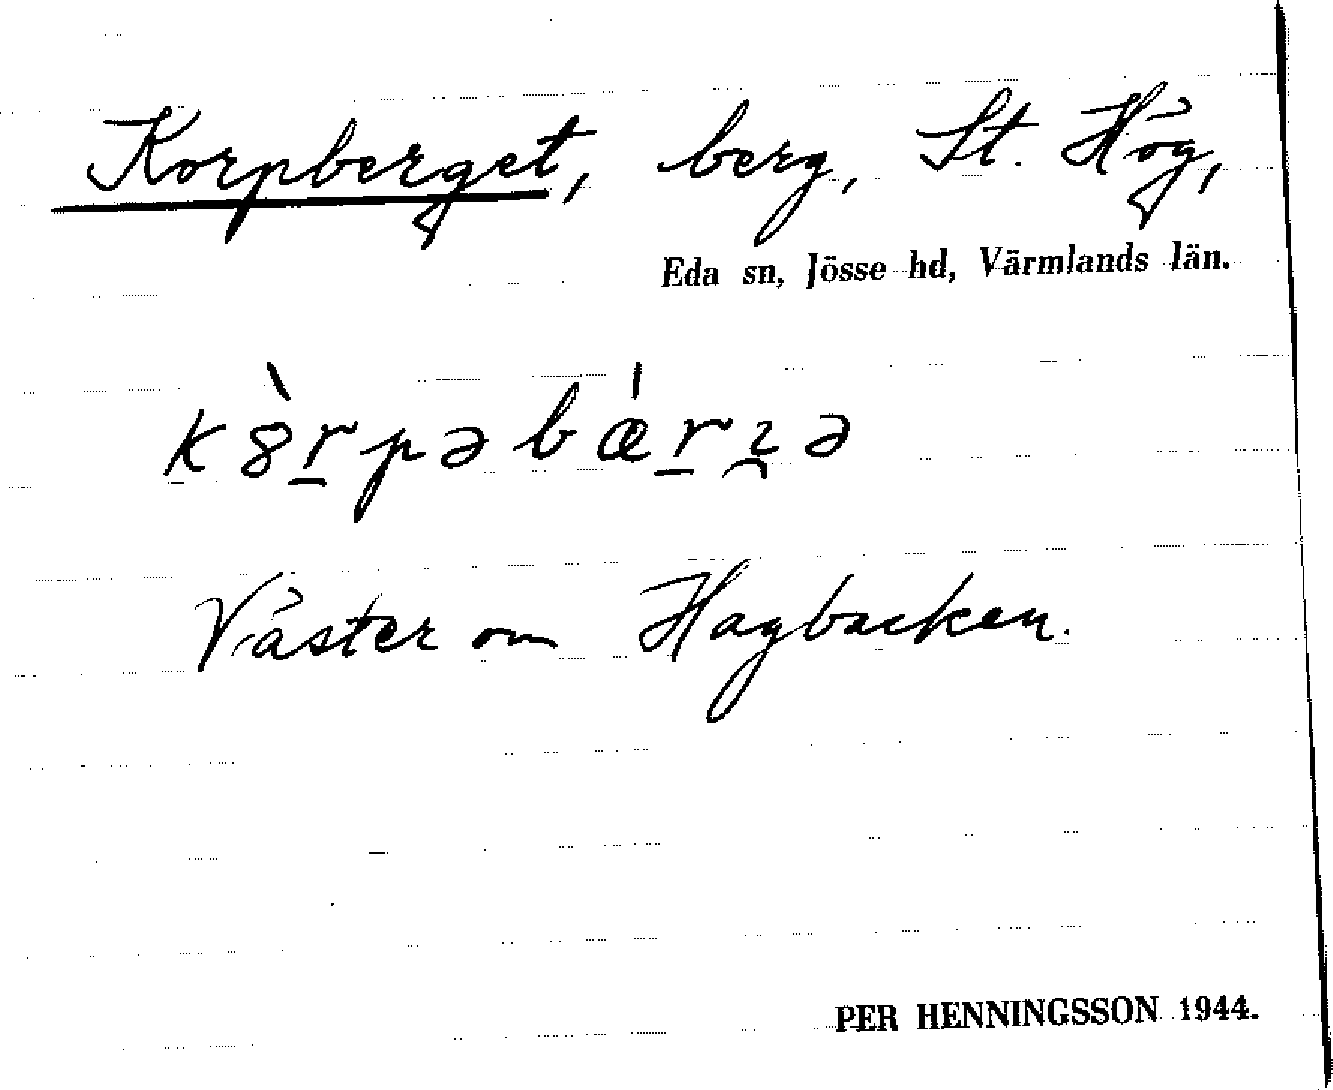 Korpberget, berg, St. Hög,
Eda sn, Jösse hd, Värmlands län.
k8̀r̲pəbǽr̲ʓə
Väster om Hagbacken.
PER HENNINGSSON 1944.